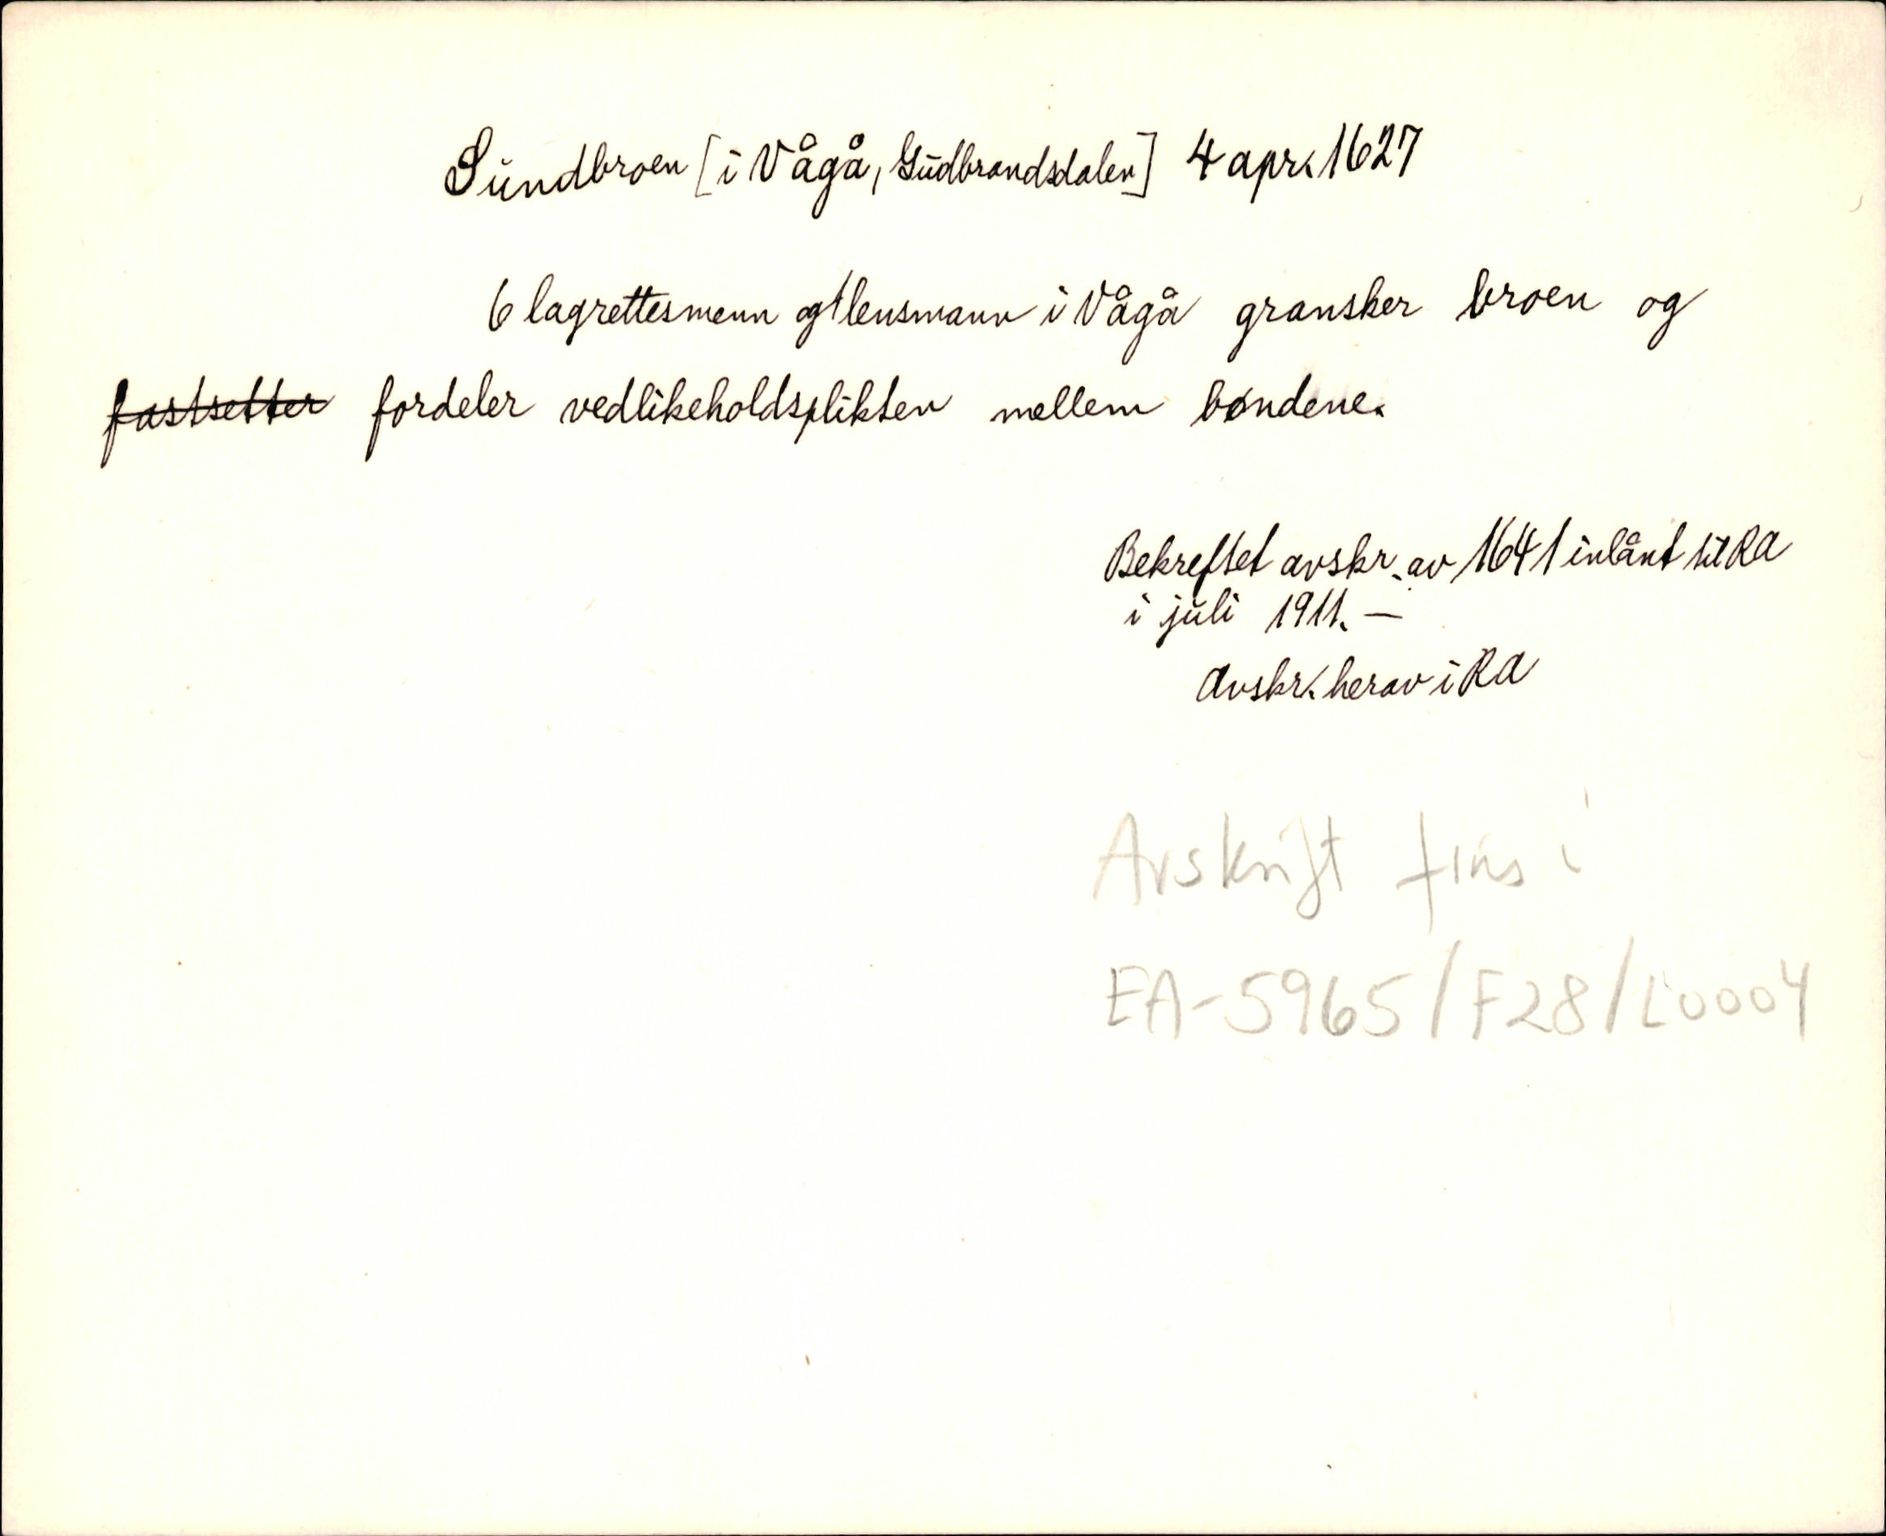 Sundbroen [i Vågå, Gudbrandsdalen] 4 apr. 1627
6 lagrettesmenn og 1 lensmann i Vågå gransker broen og
fastsetter fordeler vedlikeholdsplikten mellem bøndene.
Bekreftet avskr. av 1641 inlånt til RA
i juli 1911. —
Avskr. herav i RA
Avskrift fins i
EA-5965/F28/L0004